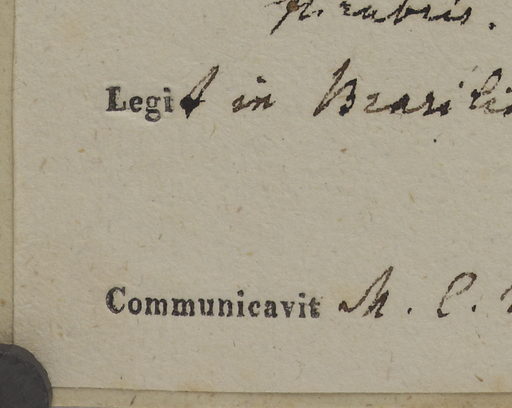 fl. rubris.
Legit in Brasili
Communicavit M. C.